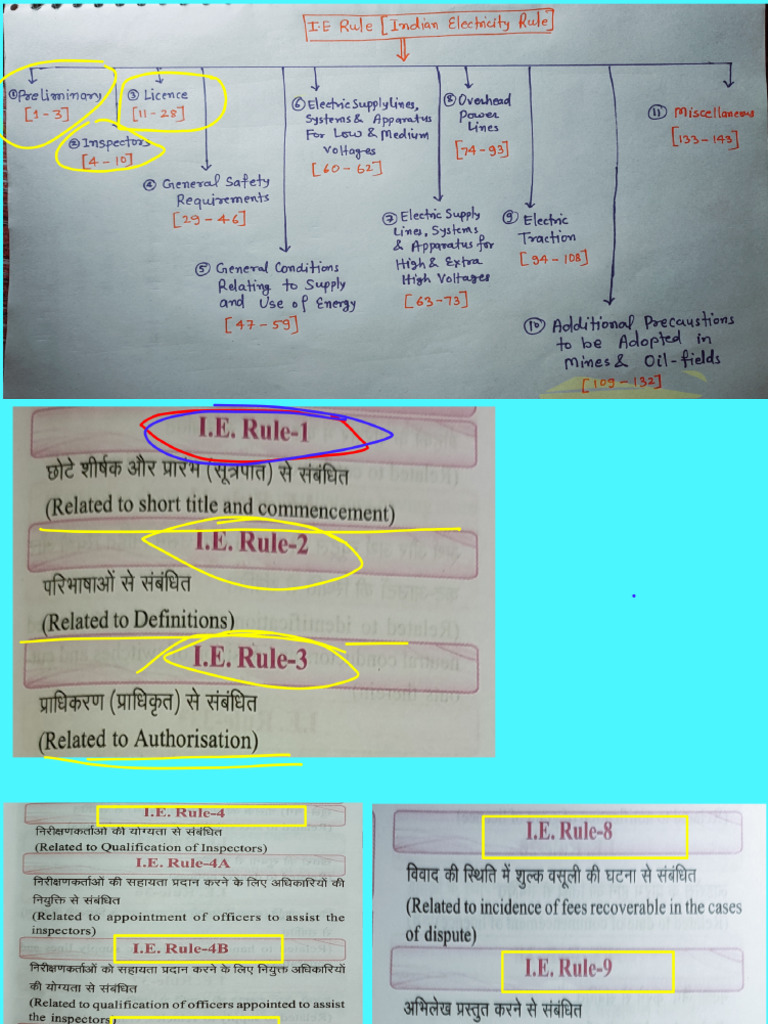 I.E Rule [Indian Electricity Rule]
① Preliminary
[1-3]
② Inspectors
[4-10]
③ Licence
[11-28]
④ General Safety
Requirements
[29-46]
⑤ General Conditions
Relating to Supply
and Use of Energy
[47-59]
⑥ Electric Supply Lines,
Systems & Apparatus
For Low & Medium
Voltages
[60-62]
⑦ Electric Supply
Lines, Systems
& Apparatus for
High & Extra
High Voltages
[63-73]
⑧ Overhead
Power
Lines
[74-93]
⑨ Electric
Traction
[94-108]
⑩ Additional Precaustions
to be Adopted in
Mines & Oil-fields
[109-132]
⑪ Miscellaneous
[133-143]
I.E. Rule-1
छोटे शीर्षक और प्रारंभ (सूत्रपात) से संबंधित
(Related to short title and commencement)
I.E. Rule-2
परिभाषाओं से संबंधित
(Related to Definitions)
I.E. Rule-3
प्राधिकरण (प्राधिकृत) से संबंधित
(Related to Authorisation)
I.E. Rule-4
निरीक्षणकर्ताओं की योग्यता से संबंधित
(Related to Qualification of Inspectors)
I.E. Rule-4A
निरीक्षणकर्ताओं की सहायता प्रदान करने के लिए अधिकारियों की
नियुक्ति से संबंधित
(Related to appointment of officers to assist the
inspectors)
I.E. Rule-4B
निरीक्षणकर्ताओं को सहायता प्रदान करने के लिए नियुक्त अधिकारियों
की योग्यता से संबंधित
(Related to qualification of officers appointed to assist
the inspectors)
I.E. Rule-8
विवाद की स्थिति में शुल्क वसूली की घटना से संबंधित
(Related to incidence of fees recoverable in the cases
of dispute)
I.E. Rule-9
अभिलेख प्रस्तुत करने से संबंधित